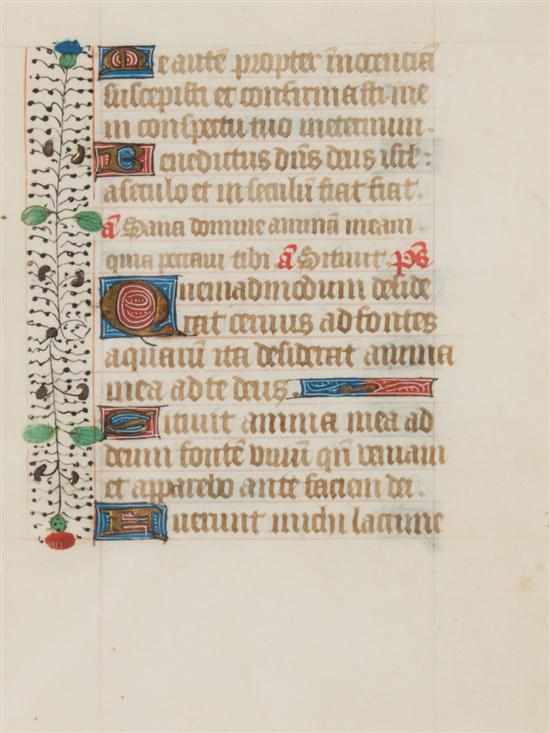 Me autē propter inocenciā
suscepisti et confirmasti me
in conspectu tuo ineternum.
Benedictus dn̄s deus isrl̄:
aseculo et in seculū fiat fiat.
ā Sana domine animā meam
quia peccaui tibi ā Sitiuit ps̄
Quemadmodum deside
rat ceruus ad fontes
aquarū ita desiderat anima
mea ad te deus.
Sitiuit anima mea ad
deum fontē viuū qn̄ veniam
et apparebo ante faciem dei.
Fuerunt michi lacrime